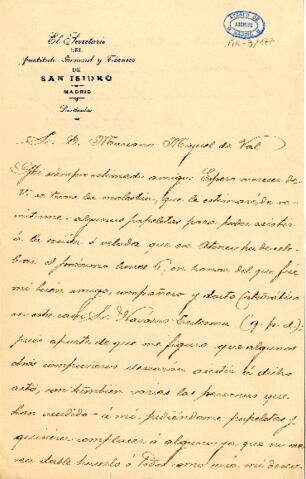 ATENEO DE MADRID
ARCHIVO
El Secretario
DEL
Instituto General y Técnico
DE
SAN ISIDRO
MADRID
Particular
Sr. D. Mariano Miguel de Val
Mi siempre estimado amigo: Espero merecer de
V. se tome la molestia, que le estimaré, de re-
mitirme algunas papeletas para poder asistir
á la sesión ó velada que ese Ateneo ha de cele-
brar el próximo Lunes 6, en honor del que fué
mi buen amigo, compañero y docto Catedrático
en esta casa Sr. Navarro Ledesma (q. p. d.);
pues aparte de que me figuro que algunos
otros compañeros desearan asistir á dicho
acto, son también varias las personas que
han acudido á mí, pidiéndome papeletas y
quisiera complacer á alguno ya que no me
sea dable hacerlo á todos como sería mi deseo